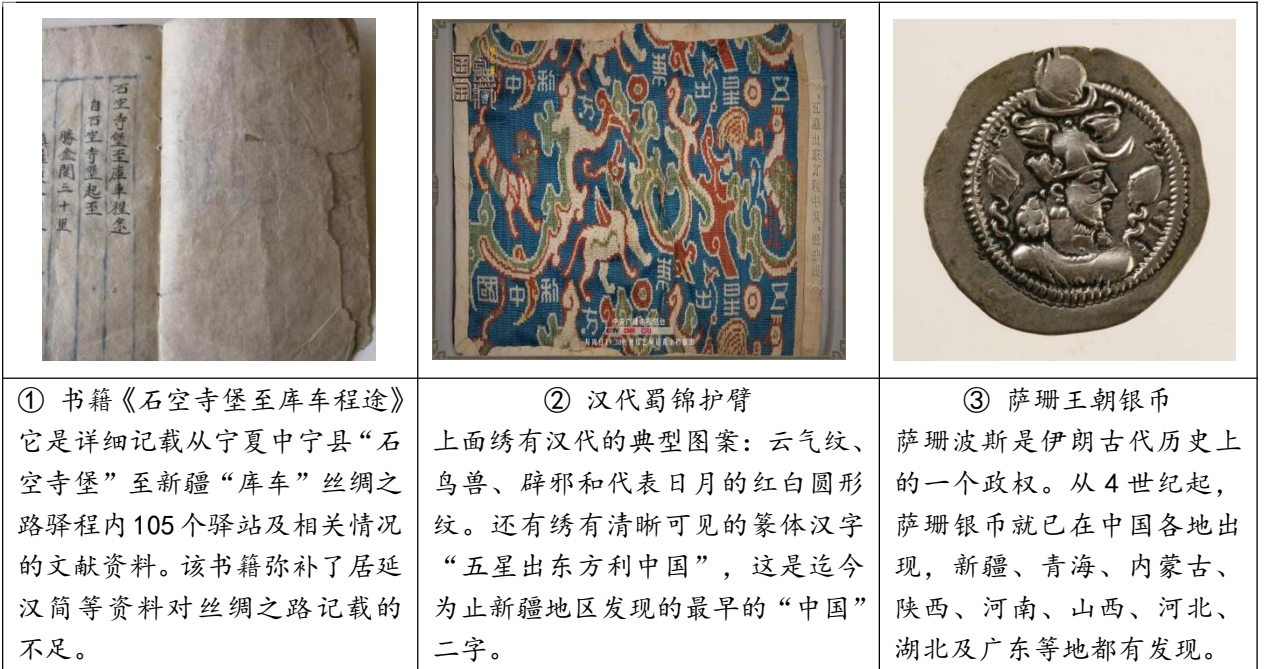 石空寺堡至庫車程途
自石空寺堡起至
勝金関三十里
五星出東方利中
五星出東方利中國
中央广播电视总台
① 书籍《石空寺堡至库车程途》
它是详细记载从宁夏中宁县“石
空寺堡”至新疆“库车”丝绸之
路驿程内105个驿站及相关情况
的文献资料。该书籍弥补了居延
汉简等资料对丝绸之路记载的
不足。
② 汉代蜀锦护臂
上面绣有汉代的典型图案：云气纹、
鸟兽、辟邪和代表日月的红白圆形
纹。还有绣有清晰可见的篆体汉字
“五星出东方利中国”，这是迄今
为止新疆地区发现的最早的“中国”
二字。
③ 萨珊王朝银币
萨珊波斯是伊朗古代历史上
的一个政权。从4世纪起，
萨珊银币就已在中国各地出
现，新疆、青海、内蒙古、
陕西、河南、山西、河北、
湖北及广东等地都有发现。